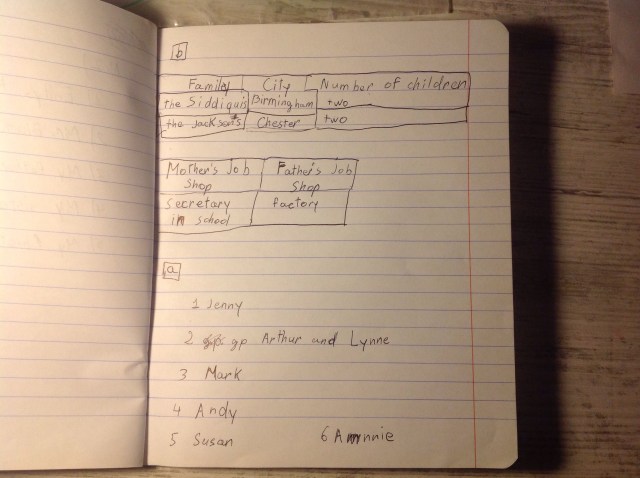 b
Family City Number of children
the Siddiquis Birmingham two
the Jacksons Chester two
Mother's Job Father's Job
Shop Shop
secretary factory
in school
a
1 Jenny
2 gp Arthur and Lynne
3 Mark
4 Andy
5 Susan 6 Annie